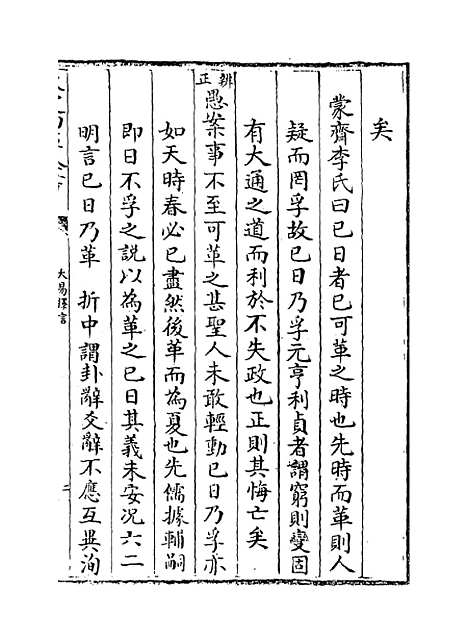 矣
蒙齋李氏曰已日者已可革之時也先時而革則人
疑而罔孚故已日乃孚元亨利貞者謂窮則變固
有大通之道而利於不失政也正則其悔亡矣
辨正
愚案事不至可革之甚聖人未敢輕動已日乃孚亦
如天時春必已盡然後革而為夏也先儒據輔嗣
即日不孚之說以為革之已日其義未安況六二
明言已日乃革　折中謂卦辭爻辭不應互異洵
大易擇言
二